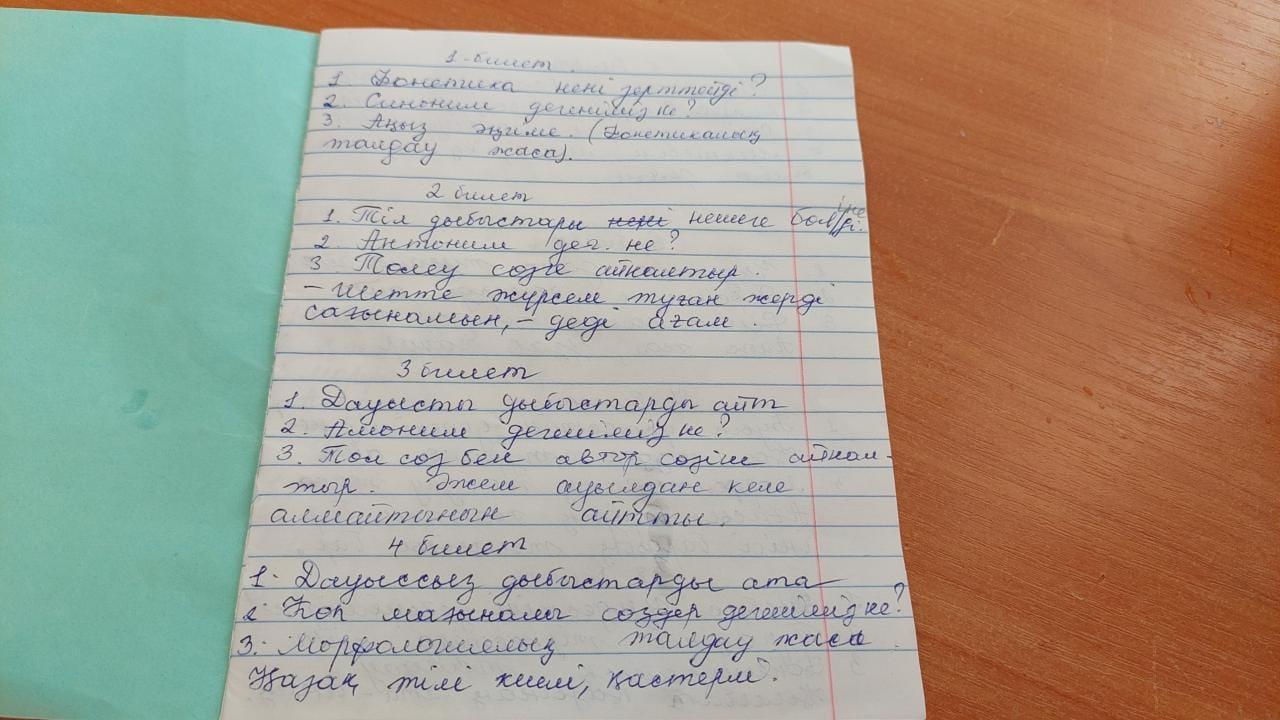 1-билет.
1. Фонетика нені зерттейді?
2. Синоним дегеніміз не?
3. Аңыз әңгіме. (Фонетикалық
талдау жаса).
2 билет
1. Тіл дыбыстары нені нешеге бөл/ді.
2. Антоним дег. не?
3 Төлеу сөзге айналтыр.
- Шетте жүрсем туған жерді
сағынамын, - деді ағам.
3 билет
1. Дауысты дыбыстарды айт
2. Амоним дегеніміз не?
3. Төл сөз бен автор сөзін айнал-
тыр. Әкем ауылдан келе
алмайтынын айтты.
4 билет
1. Дауыссыз дыбыстарды ата
2. Көп мағыналы сөздер дегеніміз не?
3. Морфологиялық талдау жаса.
Қазақ тілі киелі, қастерлі.